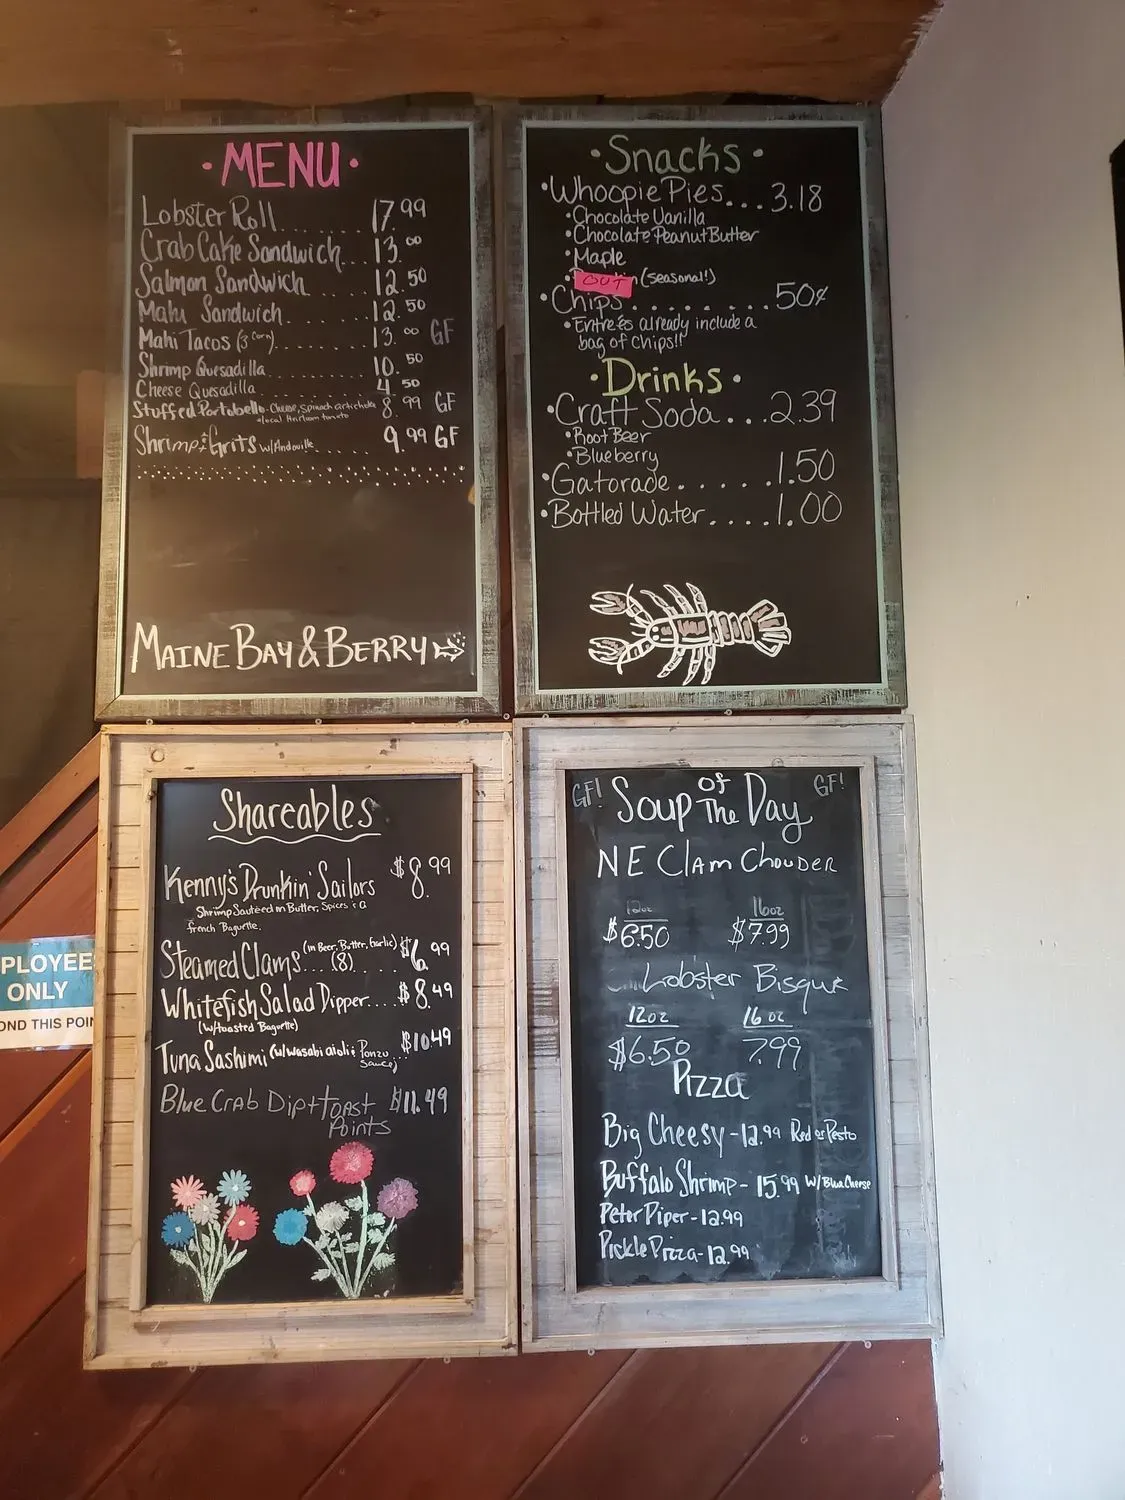 ·MENU·
Lobster Roll........17.99
Crab Cake Sandwich...13.00
Salmon Sandwich.......12.50
Mahi Sandwich..........12.50
Mahi Tacos (3 Corn)..........13.00 GF
Shrimp Quesadilla............10.50
Cheese Quesadilla 4.50
Stuffed Portobello-Cheese, Spinach artichoke 8.99 GF
+local Heirloom tomato
Shrimp & Grits w/Andouille........9.99 GF
MAINE BAY & BERRY
·Snacks·
·Whoopie Pies...3.18
·Chocolate Vanilla
·Chocolate Peanut Butter
·Maple
OUT (seasonal!)
·Chips.......50¢
·Entreés already include a
bag of chips!!
·Drinks·
·Craft Soda...2.39
·Root Beer
·Blueberry
·Gatorade.....1.50
·Bottled Water....1.00
Shareables
Kenny's Drunkin' Sailors $8.99
Shrimp Sauteed in Butter, Spices
french Baguette.
Steamed Clams (in Beer, Butter, Garlic) $6.99
(8)
Whitefish Salad Dipper....$8.49
(w/toasted Baguette)
Tuna Sashimi (w/wasabi aioli & Ponzu $10.49
sauce)
Blue Crab Dip + Toast $11.49
Points
GF! Soup of The Day GF!
NE Clam Chowder
12oz 16oz
$6.50 $7.99
Lobster Bisque
12oz 16oz
$6.50 7.99
Pizza
Big Cheesy - 12.99 Red or Pesto
Buffalo Shrimp - 15.99 w/Blue Cheese
Peter Piper - 12.99
Pickle Pizza - 12.99
PLOYEE
ONLY
OND THIS POIN